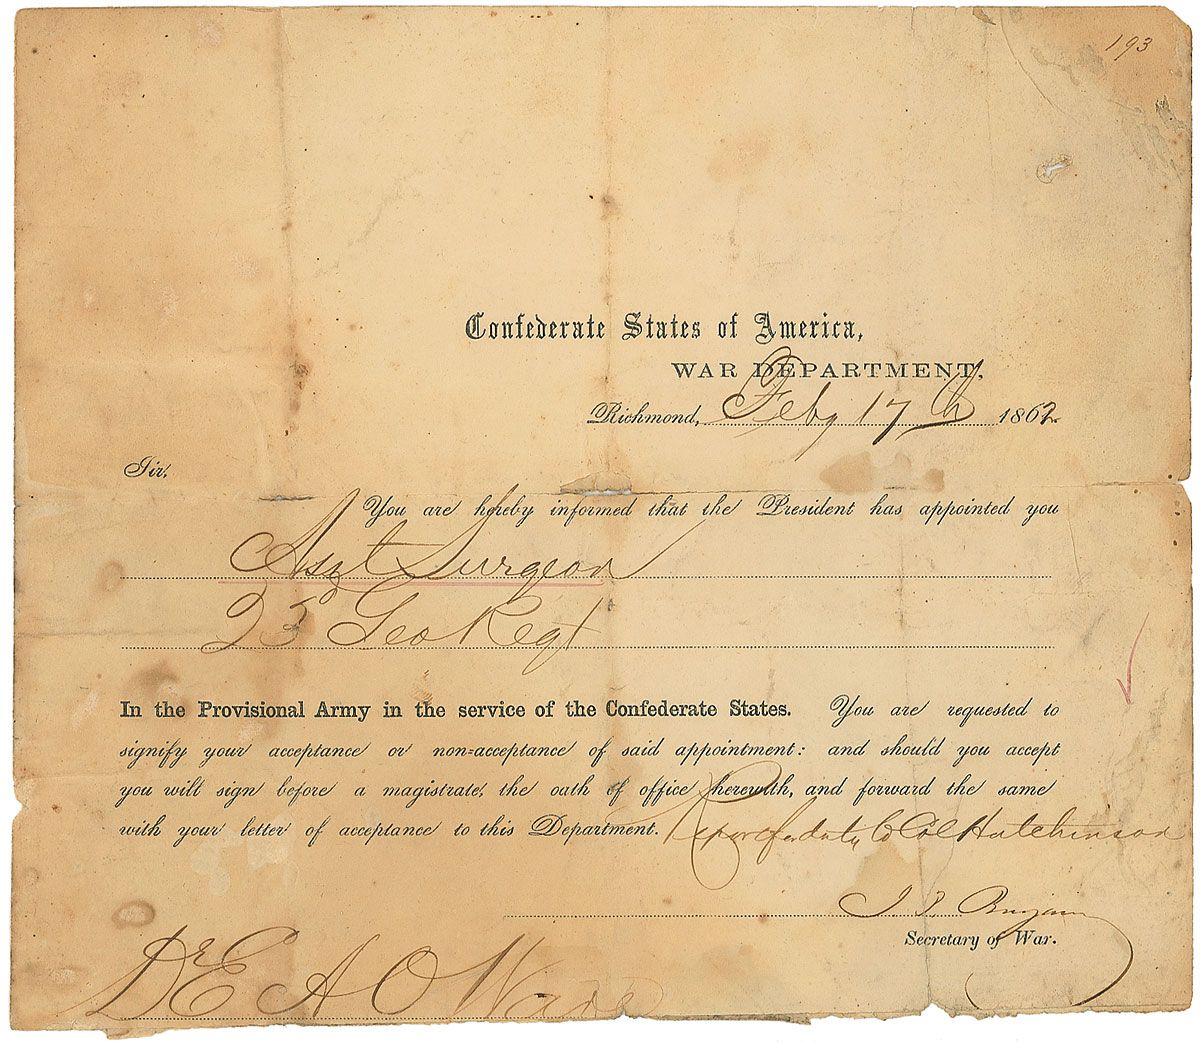 193
Confederate States of America,
WAR DEPARTMENT,
Richmond, Feby 17th 1862.
Sir.
You are hereby informed that the President has appointed you
Asst Surgeon
25 Geo Regt
In the Provisional Army in the service of the Confederate States. You are requested to
signify your acceptance or non-acceptance of said appointment: and should you accept
you will sign before a magistrate, the oath of office herewith, and forward the same
with your letter of acceptance to this Department. Report for duty to Col Hutchinson
J P Benjamin
Secretary of War.
Dr E A O Ware